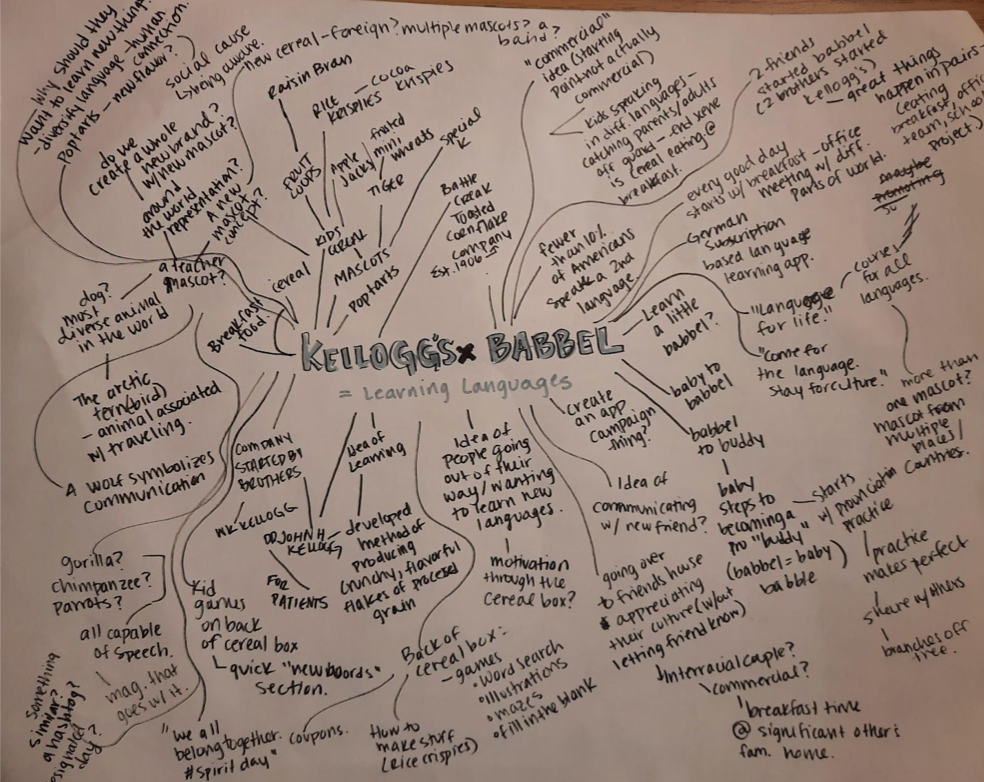 Why should they
want to learn new things?
-diversity language - human
connection.
Poptarts - newflavor?
Social cause
↳ being aware.
do we
create a whole
new brand?
w/ new mascot?
around
the world
representation?
A new
mascot
concept?
a teacher
mascot?
dog?
most
diverse animal
in the world
The arctic
tern(bird)
- animal associated
w/ traveling.
A wolf symbolizes
communication
new cereal-foreign? multiple mascots? a
band?
Raisin Bran
RICE
KRISPIES
- cocoa
krispies
FRUIT
LOOPS
Apple
Jacks
frosted
mini
wheats
TIGER
Special
K
KIDS
CEREAL
MASCOTS
Poptarts
cereal
Breakfast
food
Battle
Creek
Toasted
Cornflake
Company
Est. 1906
"commercial"
idea (starting
point not actually
commercial)
Kids speaking
in diff. languages -
catching parents/adults
off guard - end scene
is cereal eating @
breakfast.
2 friends
started babbel
(2 brothers started
Kellogg's)
- great things
happen in pairs -
(eating
breakfast, office
team, school
project.)
every good day
starts w/ breakfast - office
meeting w/ diff.
parts of world.
fewer
than 10%
of Americans
speak a 2nd
language.
German
Subscription
based language
learning app.
"Language
for life."
courses
for all
languages.
"Come for
the language.
Stay for culture."
Learn
a little
babbel?
KELLOGG'S x BABBEL
= Learning Languages
baby to
babbel
babbel
to buddy
baby
steps to
becoming a
pro "buddy"
(babbel = baby)
babble
- starts
w/ pronunciation
practice
practice
makes perfect
share w/ others
branches off
tree.
more than
one mascot?
mascot from
multiple
places/
countries.
create
an app
campaign
thing?
Idea of
communicating
w/ new friend?
going over
to friends house
& appreciating
their culture (w/out
letting friend know)
Interracial couple?
commercial?
breakfast time
@ significant others
fam. home.
Idea of
people going
out of their
way/wanting
to learn new
languages.
motivation
through the
cereal box?
Idea of
Learning
COMPANY
STARTED BY
BROTHERS
WK KELLOGG
DR JOHN H
KELLOGG
FOR
PATIENTS
developed
method of
producing
crunchy, flavorful
flakes of processed
grain
Kid
games
on back
of cereal box
quick "new words"
section.
Back of
cereal box:
- games
• word search
• illustrations
• mazes
• fill in the blank
coupons.
How to
make stuff
(Rice crispies)
gorilla?
chimpanzee?
parrots?
all capable
of speech.
mag. that
goes w/ it.
"we all
belong together.
#Spirit day"
Something
similar?
a hashtag?
day?